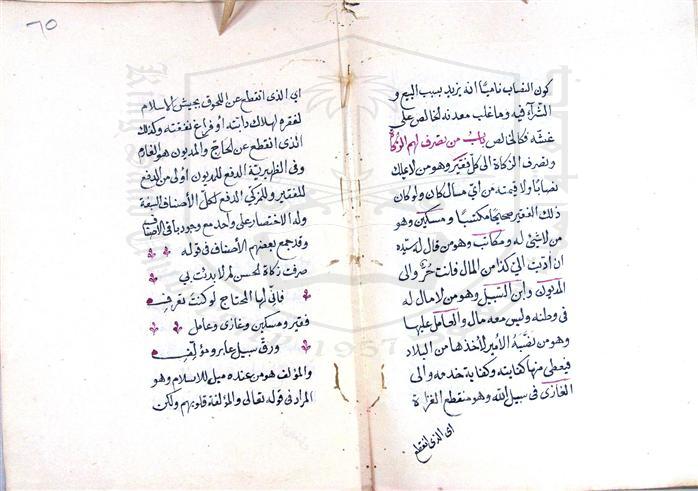 كون النصاب ناميًا انه يزيد بسبب البيع و
الشرآء فيه وما غلب معدنه لخالص على
غشه فكالخالص باب من تصرف لهم الزكاة
وتصرف الزكاة الى كل فقير وهو من لا يملك
نصابا ولا قيمته من اي مال كان ولو كان
ذلك الفقير صحيحا مكتسبا ومسكين وهو
من لا شئ له ومكاتب وهو من قال له سيده
ان اديت الي كذا من المال فانت حر والى
المديون وابن السبيل وهو من لا مال له
فى وطنه وليس معه مال والعامل عليها
وهو من نصبه الأمير لأخذها من البلاد
فيعطى منها كفايته وكفاية خدمه والى
الغازى فى سبيل الله وهو منقطع الغزاة
اى الذى انقطع
٦٥
اي الذى انقطع عن اللحوق بجيش الاسلام
لفقره لهلاك دابته او فراغ نفقته وكذلك
الذى انقطع عن الحاج والمديون هو الغارم
وفى الظهيرية الدفع للمديون اولى من الدفع
للفقير وللمزكي الدفع لكل الأصناف السبعة
وله الاختصار على واحد مع وجود باقى الأصناف
وقد جمع بعضهم الأصناف فى قوله
صرفت زكاة لحسن لم لا بدئت بي
فانى لها المحتاج لو كنت تعرف
فقير ومسكين وغازى وعامل
ورق سبيل عابر ومؤلف
والمؤلف هو من عنده ميل للاسلام وهو
المراد فى قوله تعالى والمؤلفة قلوبهم ولكن